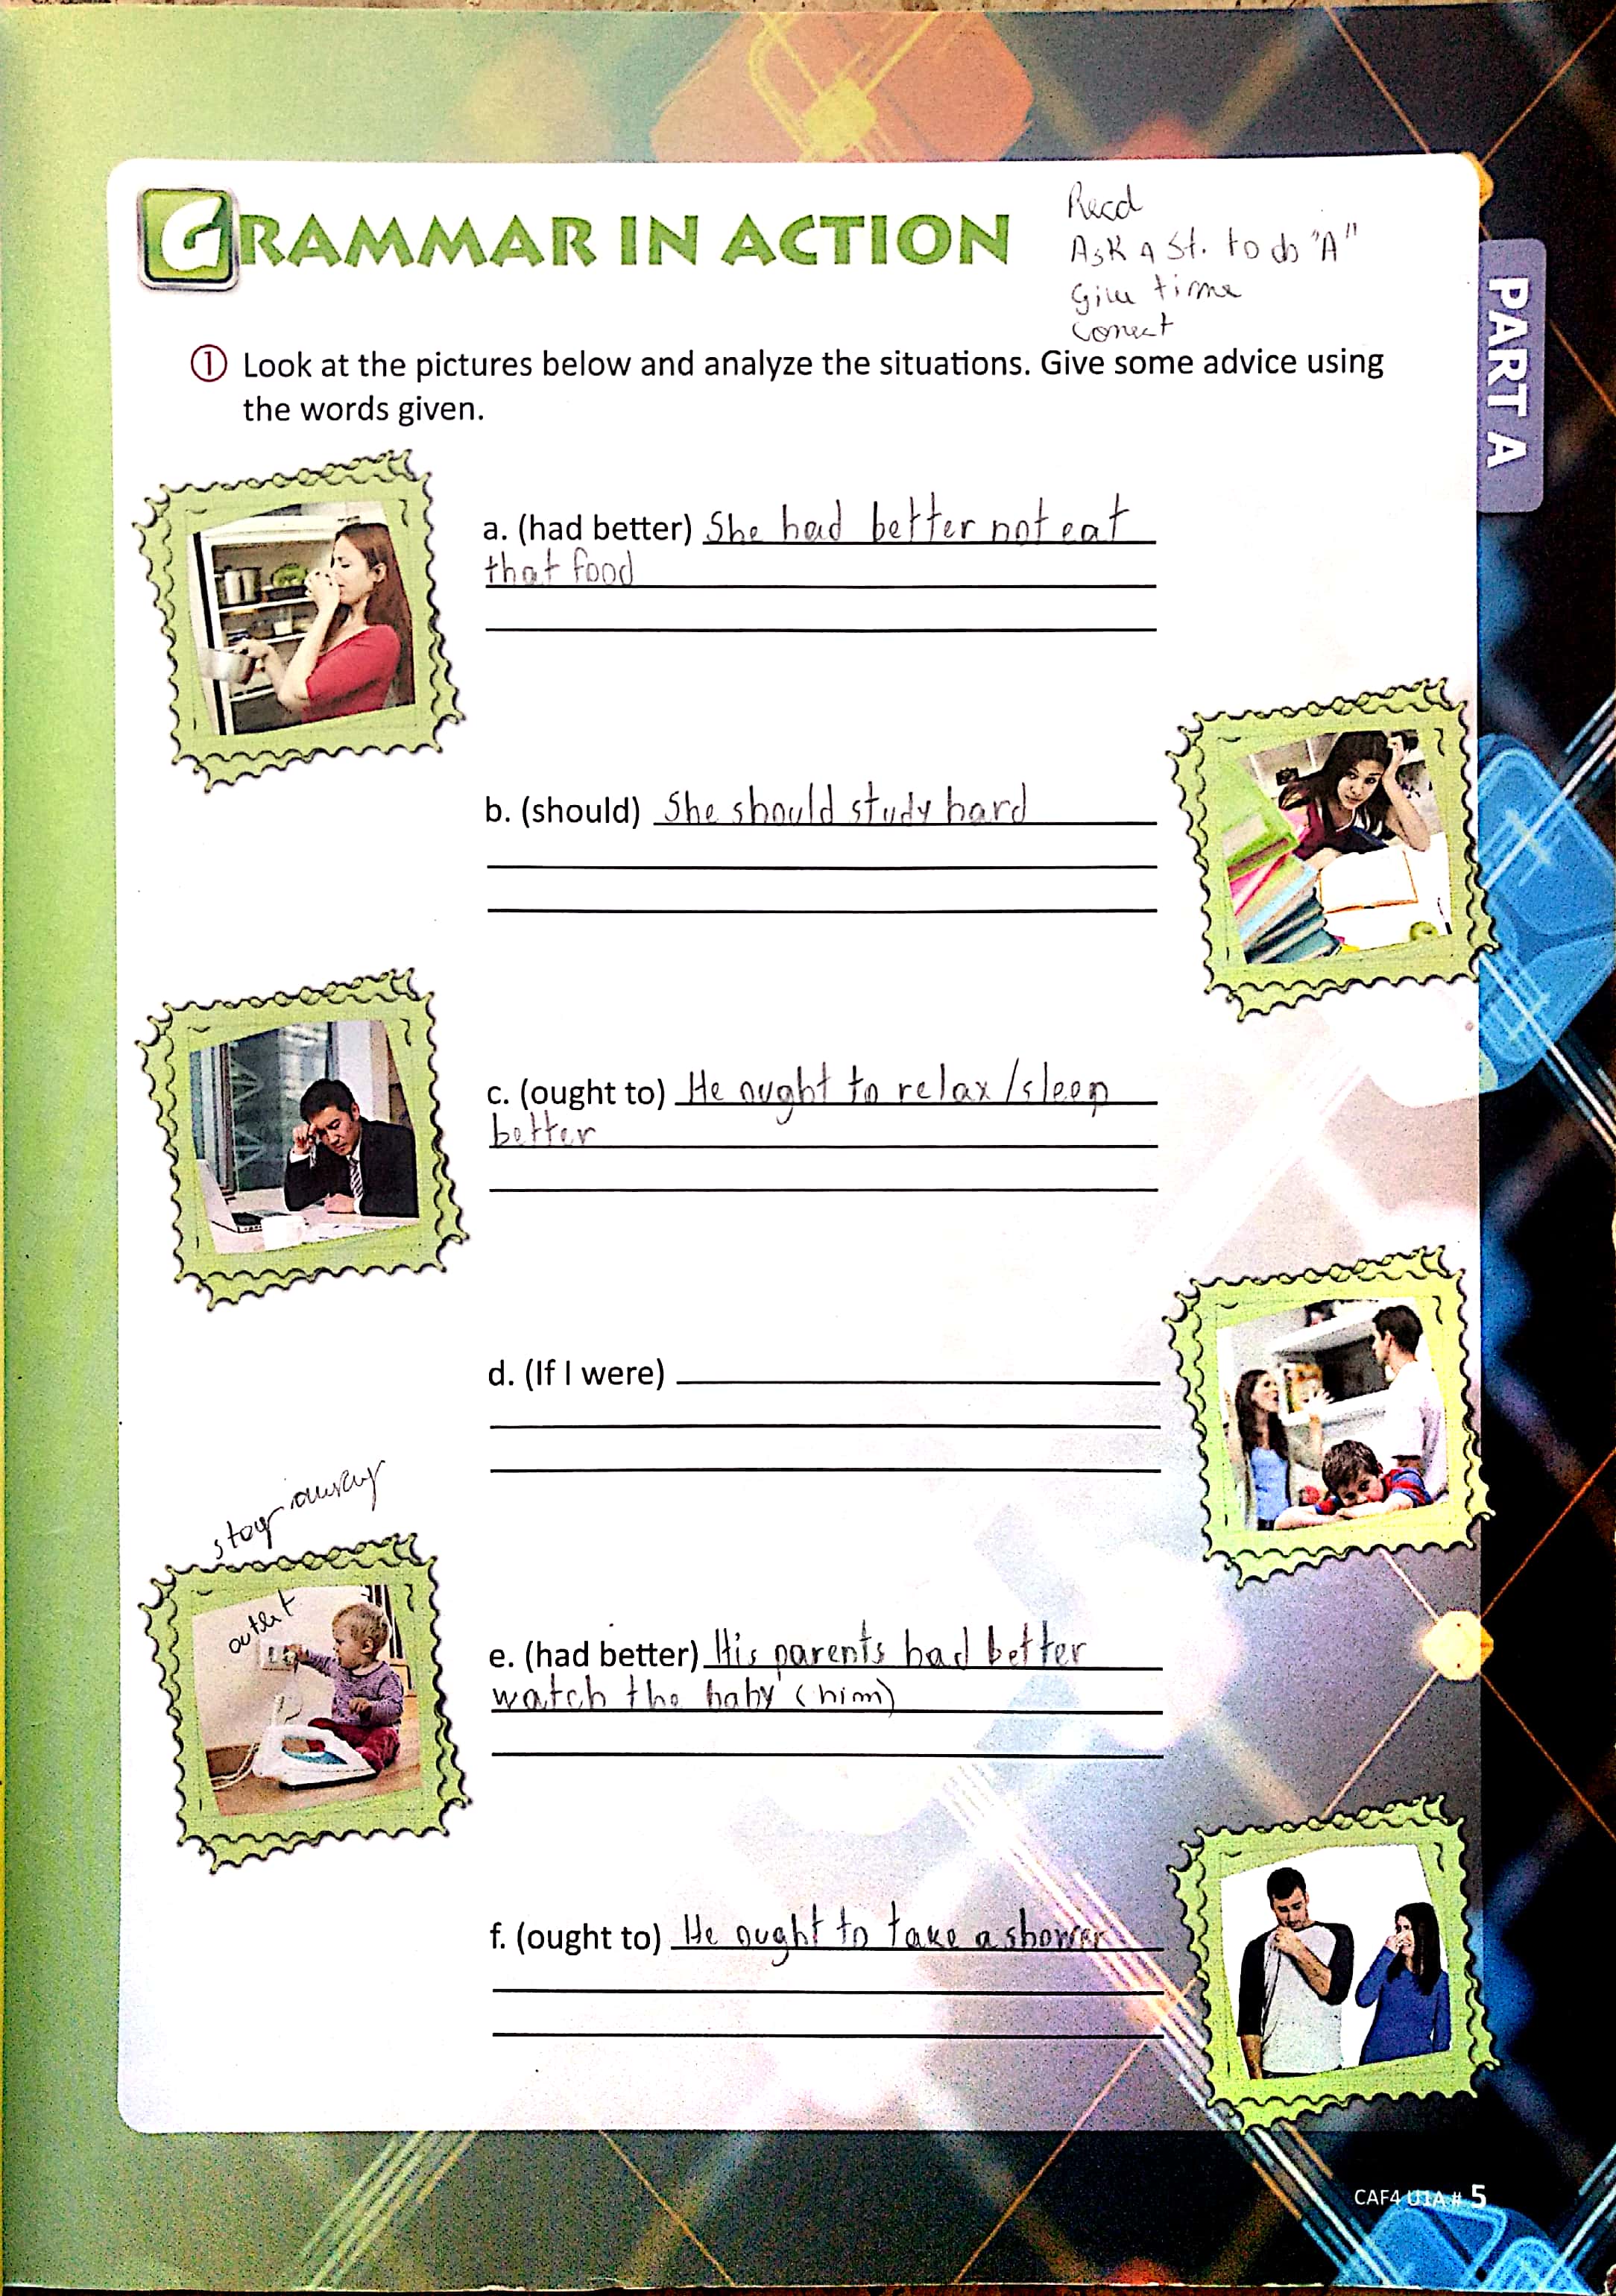 GRAMMAR IN ACTION
Read
Ask a St. to do "A"
Give time
Correct
PART A
1 Look at the pictures below and analyze the situations. Give some advice using
the words given.
a. (had better) She had better not eat
that food
b. (should) She should study hard
c. (ought to) He ought to relax/sleep
better
d. (If I were)
stay away
outlet
e. (had better) His parents had better
watch the baby (him)
f. (ought to) He ought to take a shower
CAF4 U1A # 5